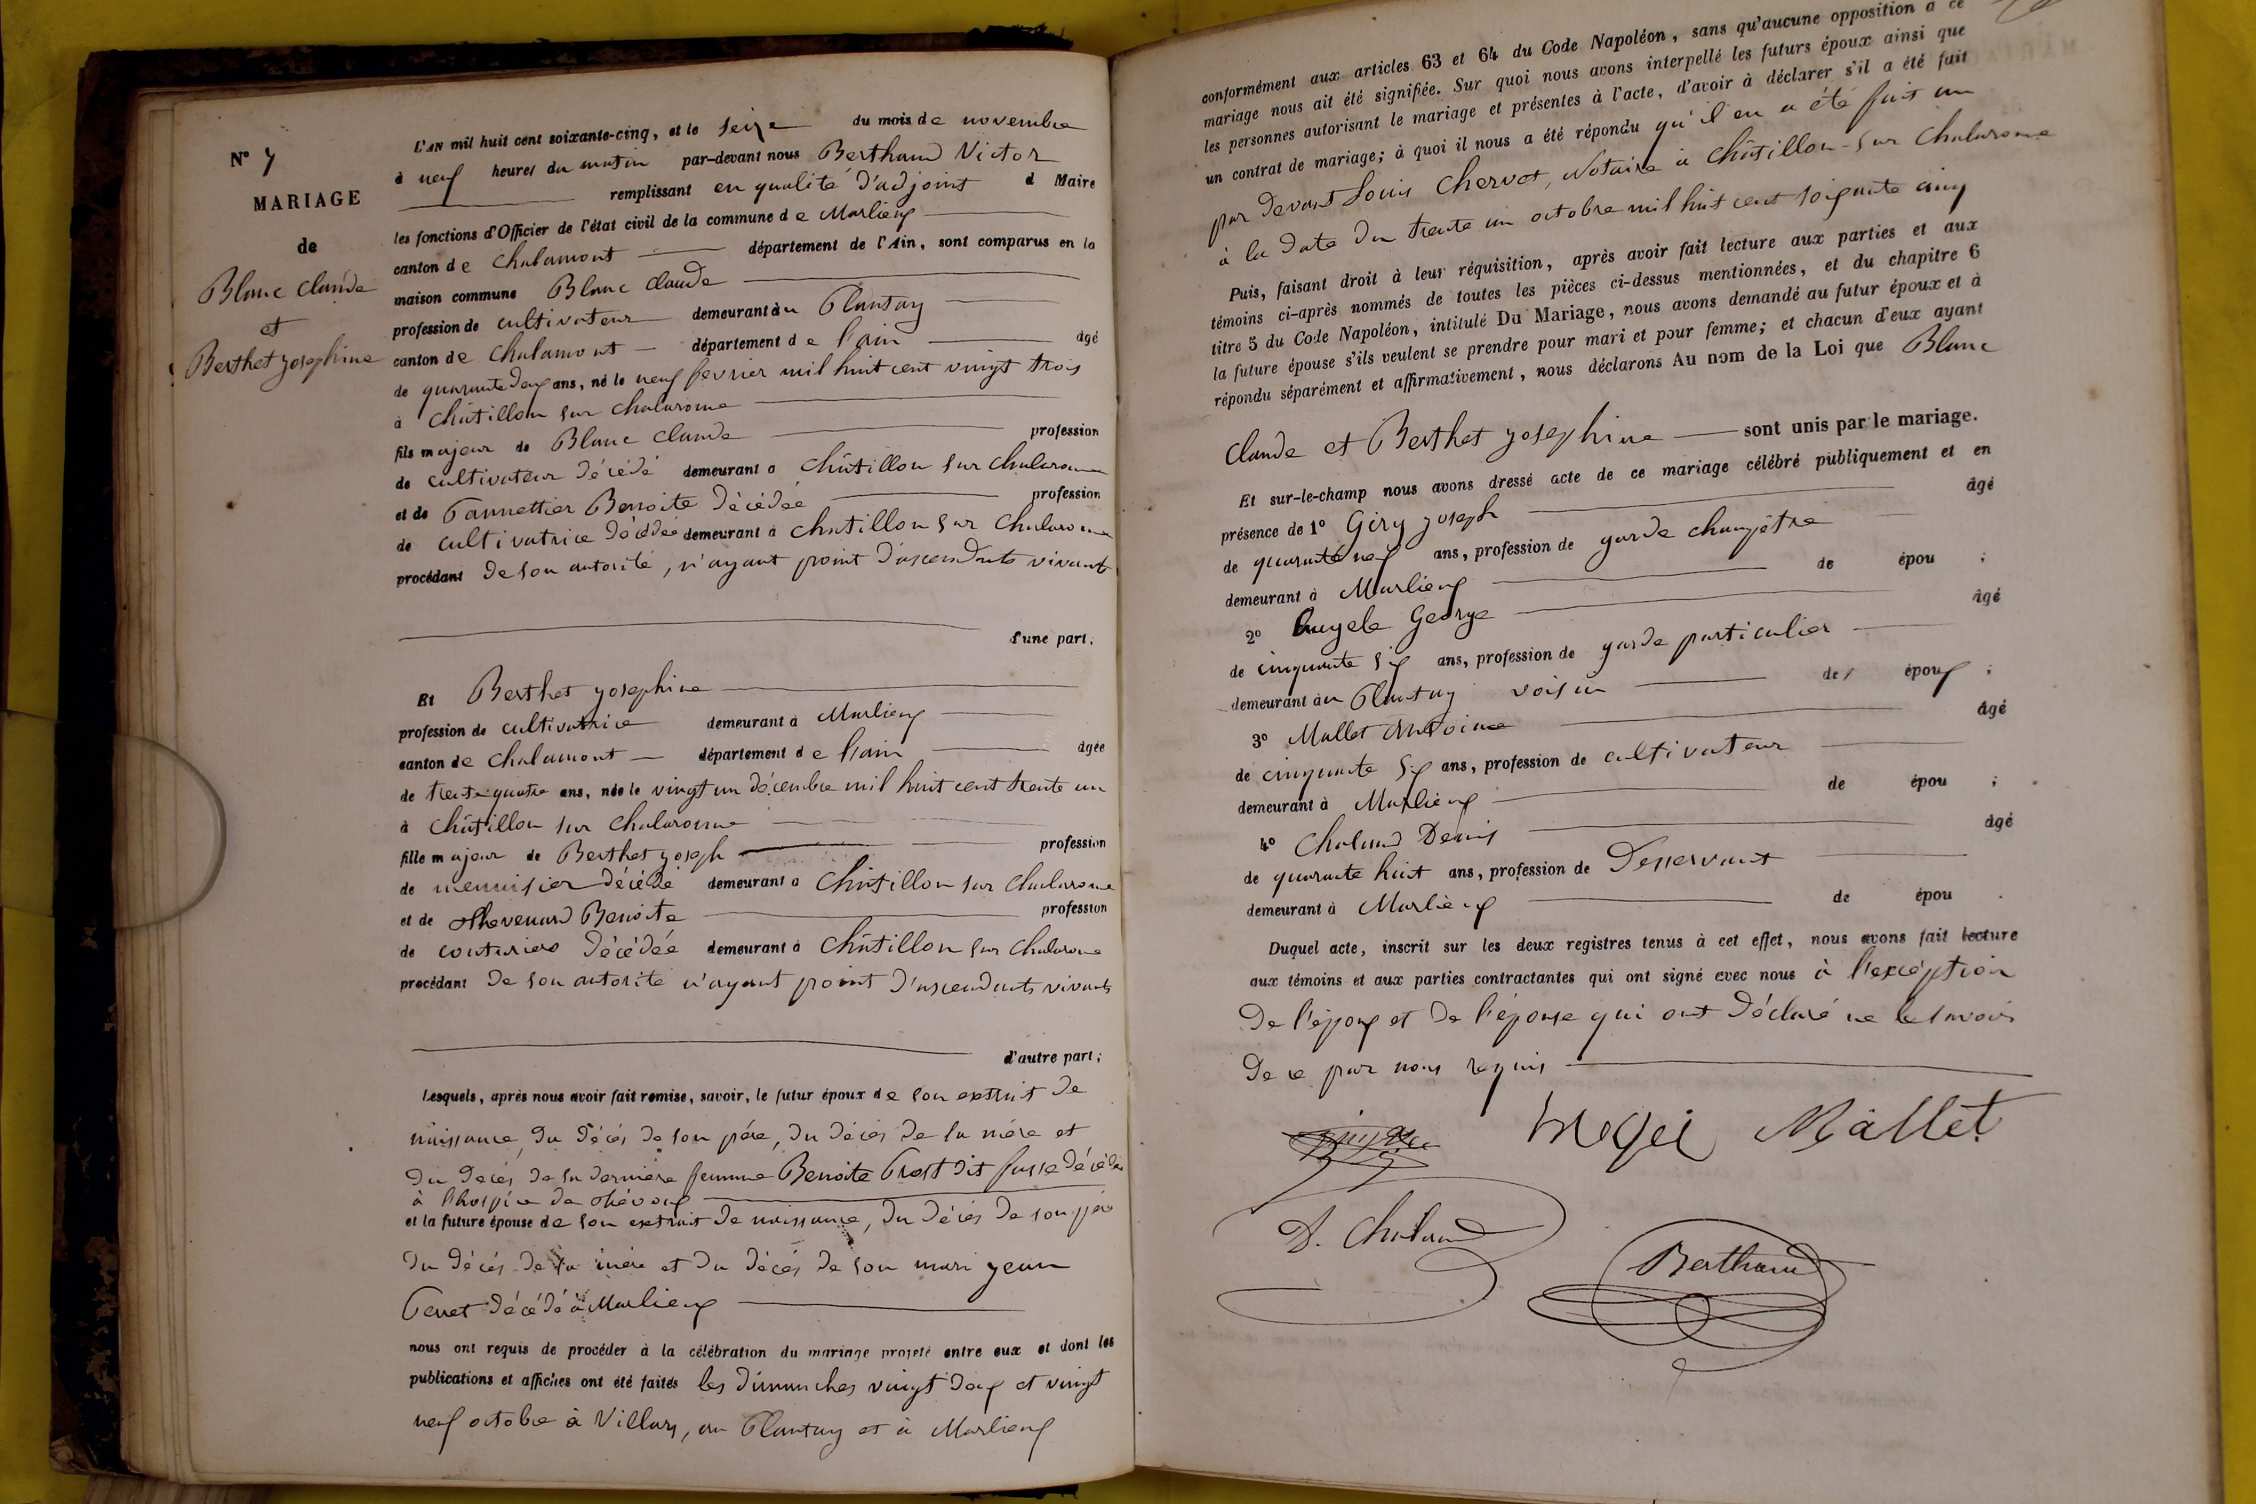 N° 7
MARIAGE
de
Blanc Claude
et
Berthet Josephine
L'AN mil huit cent soixante-cinq, et le seize du mois de novembre
à neuf heures du matin par-devant nous Berthaud Victor
remplissant en qualité d'adjoint d Maire
les fonctions d'Officier de l'état civil de la commune de Marlieux
canton de Chalamont département de l'Ain, sont comparus en la
maison commune Blanc Claude
profession de cultivateur demeurant au Plantay
canton de Chalamont département de l'ain âgé
de quarante deux ans, né le neuf fevrier mil huit cent vingt trois
à Châtillon sur Chalaronne
fils majeur de Blanc Claude profession
de cultivateur décédé demeurant a Châtillon sur Chalaronne
et de Pannettier Benoite décédée profession
de cultivatrice décédée demeurant à Chatillon sur Chalaronne
procédant de son autorité, n'ayant point d'ascendants vivants
d'une part;
Et Berthet Josephine
profession de cultivatrice demeurant à Marlieux
canton de Chalamont département de l'ain âgée
de trente quatre ans, née le vingt un décembre mil huit cent trente un
à Châtillon sur Chalaronne
fille majeur de Berthet Joseph profession
de menuisier décédé demeurant a Châtillon sur Chalaronne
et de Thevenard Benoite profession
de couturière décédée demeurant à Châtillon sur Chalaronne
procédant de son autorité n'ayant point d'ascendants vivants
d'autre part;
Lesquels, après nous avoir fait remise, savoir, le futur époux de son extrait de
naissance, du décés de son père, du décés de la mère et
du decés de sa dernière femme Benoite Prost dit fusse décédée
à l'hospice de
et la future épouse de son extrait de naissance, du décés de son père
du décés de sa mère et du décés de son mari Jean
Perret décédé à Marlieux
nous ont requis de procéder à la célébration du mariage projeté entre eux et dont les
publications et affiches ont été faites les dimanches vingt deux et vingt
neuf octobre à Villars, au Plantay et à Marlieux
conformément aux articles 63 et 64 du Code Napoléon, sans qu'aucune opposition à ce
mariage nous ait été signifiée. Sur quoi nous avons interpellé les futurs époux ainsi que
les personnes autorisant le mariage et présentes à l'acte, d'avoir à déclarer s'il a été fait
un contrat de mariage; à quoi il nous a été répondu qu'il en a été fait un
par devant Louis Chervet, Notaire à Châtillon-sur Chalaronne
à la date du trente un octobre mil huit cent soixante cinq
Puis, faisant droit à leur réquisition, après avoir fait lecture aux parties et aux
témoins ci-après nommés de toutes les pièces ci-dessus mentionnées, et du chapitre 6
titre 5 du Code Napoléon, intitulé Du Mariage, nous avons demandé au futur époux et à
la future épouse s'ils veulent se prendre pour mari et pour femme; et chacun d'eux ayant
répondu séparément et affirmativement, nous déclarons Au nom de la Loi que Blanc
Claude et Berthet Josephine sont unis par le mariage.
Et sur-le-champ nous avons dressé acte de ce mariage célébré publiquement et en
présence de 1° Giry Joseph âgé
de quarante neuf ans, profession de garde champêtre
demeurant à Marlieux de épou ;
2° George âgé
de cinquante six ans, profession de garde particulier
demeurant au Plantay voisin des époux ;
3° Mallet Antoine âgé
de cinquante six ans, profession de cultivateur
demeurant à Marlieux de épou ;
4° Chaland Denis âgé
de quarante huit ans, profession de Desservant
demeurant à Marlieux de épou .
Duquel acte, inscrit sur les deux registres tenus à cet effet, nous avons fait lecture
aux témoins et aux parties contractantes qui ont signé avec nous à l'exception
de l'époux et de l'épouse qui ont déclaré ne le savoir
de ce par nous requis
Mallet
D. Chaland
Berthaud